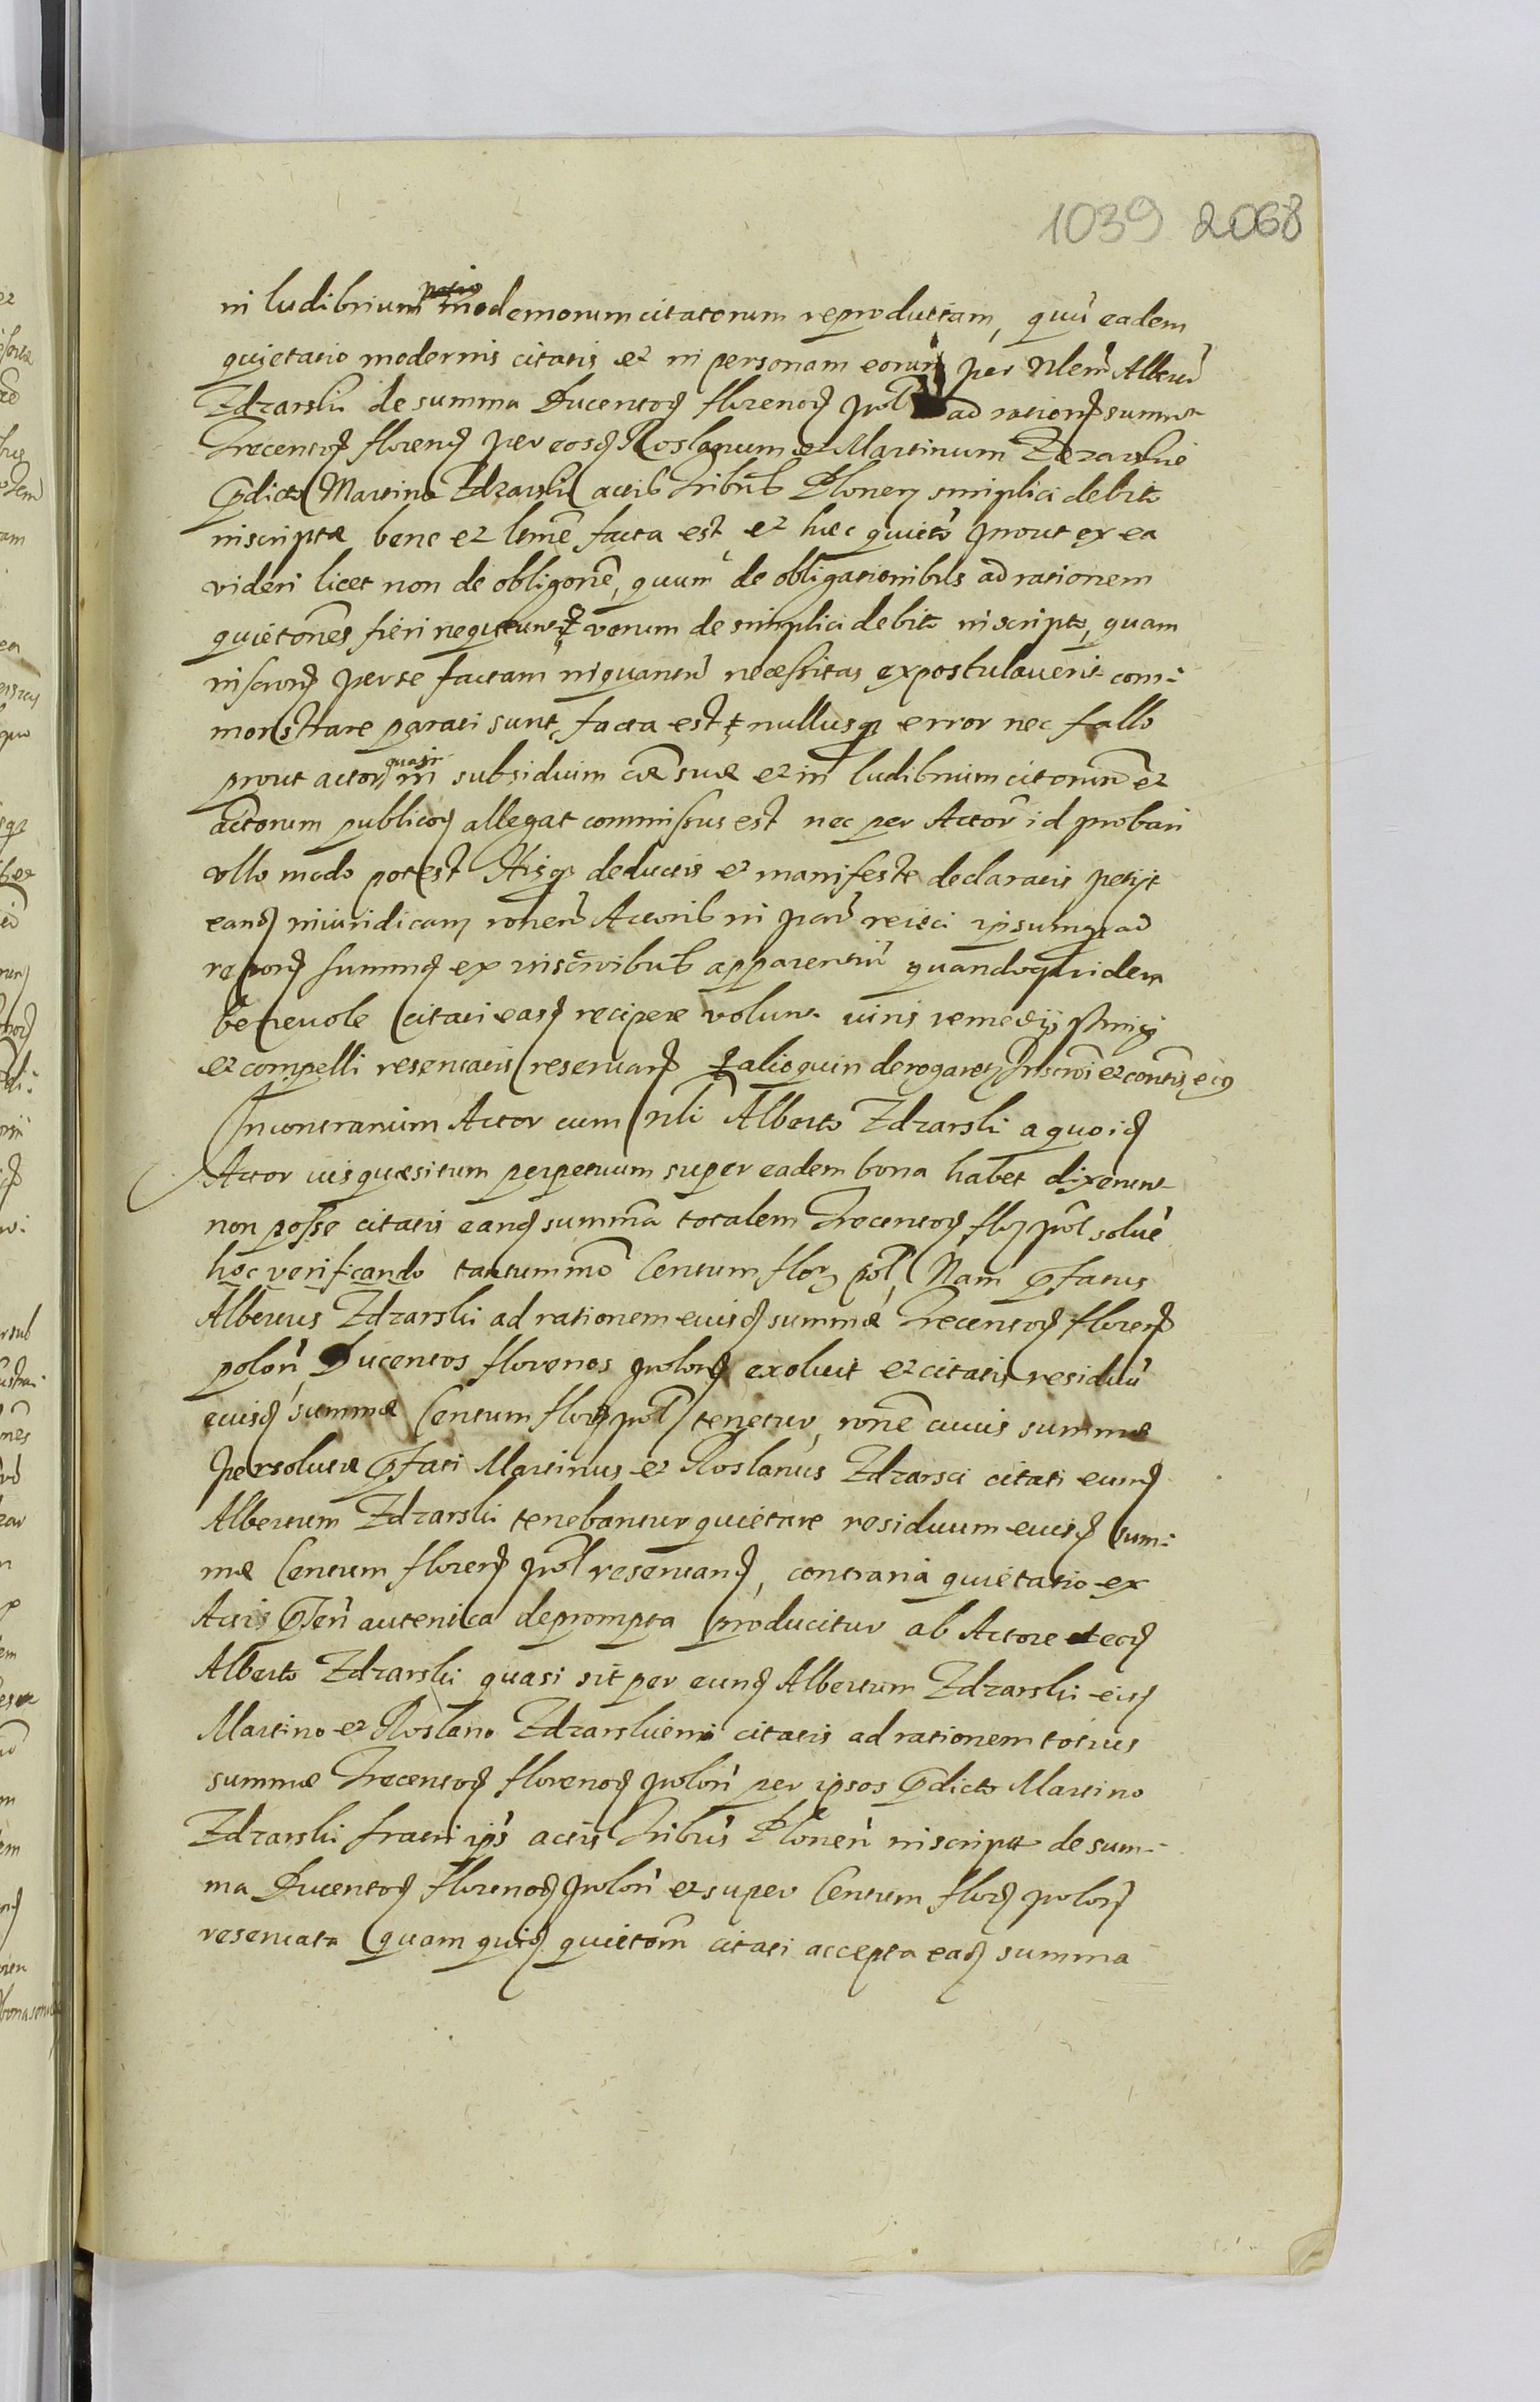 1039 2068
in ludibrium modernorum citatorum reproductam, quũ eadem
quietatio modernis citatis et in personam eorum per Nlem Albertũ
Zdzarski de summa Ducentoꝝ florenoꝝ pol ad rationẽ summæ
Trecentoꝝ florenoꝝ per eosdẽ Roslanum et Martinum Zdzarskie
p̃dicto Martino Zdzarski actis Tribũs Plonen simplici debito
inscriptæ bene et ltmẽ facta est, et hæc quietõ prout ex ea
videri licet non de obligonẽ, quum de obligationibus ad rationem
quietonẽs fieri nequeunt, verum de simplici debito inscripto, quam
inscronẽ per se factam inquantũ necessitas expostulaverit com:
monstrare parati sunt, facta est, nullusq; error nec fallo
prout actor quasi in subsidium cæ suæ et in ludibrium citorum et
actorum publicoꝝ allegat commissus est nec per Actor̃ id probari
ullo modo potest Hisq; deductis et manifeste declaratis petijt
eandẽ iniuridicam ronem Actoris in parũ reijci ipsumq; ad
summæ ex inscrõibus apparentiũ quandoquidem
benevole citati easdẽ recipere volunt iuris remedijs stringi
et compelli reservatis reservandis alioquin derogaret Inscrõi et contis eiꝰ
In contrarium Actor cum Nli Alberto Zdzarski a quo idẽ
Actor ius quæsitum perpetuum super eadem bona habet dixerunt
non posse citatis eandẽ summã totalem Trecentoꝝ floꝝ pol solvẽ
hoc verificando tantummõ Centum floꝝ pol, Nam p̃fatus
Albertus Zdzarski ad rationem eiusdẽ summæ Trecentoꝝ florenoꝝ
polon̉ Ducentos florenos polon exolvit et citatis residuũ
eiusdẽ summæ Centum floꝝ pol tenetur, ronẽ cuius summæ
persolutæ p̃fati Martinus et Roslanus Zdzarsci citati eundẽ
Albertum Zdzarski tenebantur quietare residuum eiusdẽ sum:
mæ Centum florenoꝝ pol reservandẽ, contraria quietatio ex
Actis p̃sen̉ autentica deprompta producitur ab Actore et eodẽ
Alberto Zdzarski quasi sit per eundẽ Albertum Zdzarski eisdẽ
Martino et Roslano Zdzarskiemi citatis ad rationem totius
summæ Trecentoꝝ florenoꝝ polon̉ per ipsos p̃dicto Martino
Zdzarski fratri ipõ actis Tribũs Plonen̉ inscriptæ de sum:
ma Ducentoꝝ florenoꝝ polon̉ et super Centum floꝝ polon
reservata quam quidẽ quietonm citati accepta eadẽ summa